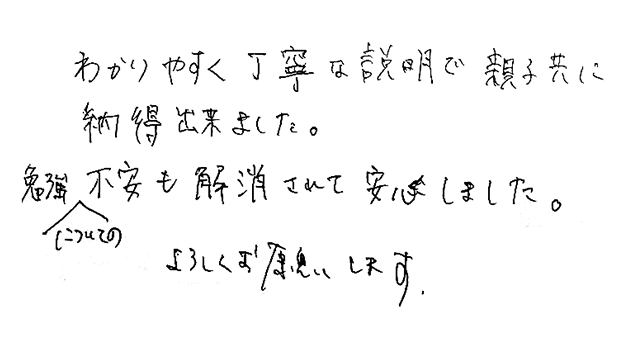 わかりやすく丁寧な説明で親子共に
納得出来ました。
勉強についての不安も解消されて安心しました。
よろしくお願いします.